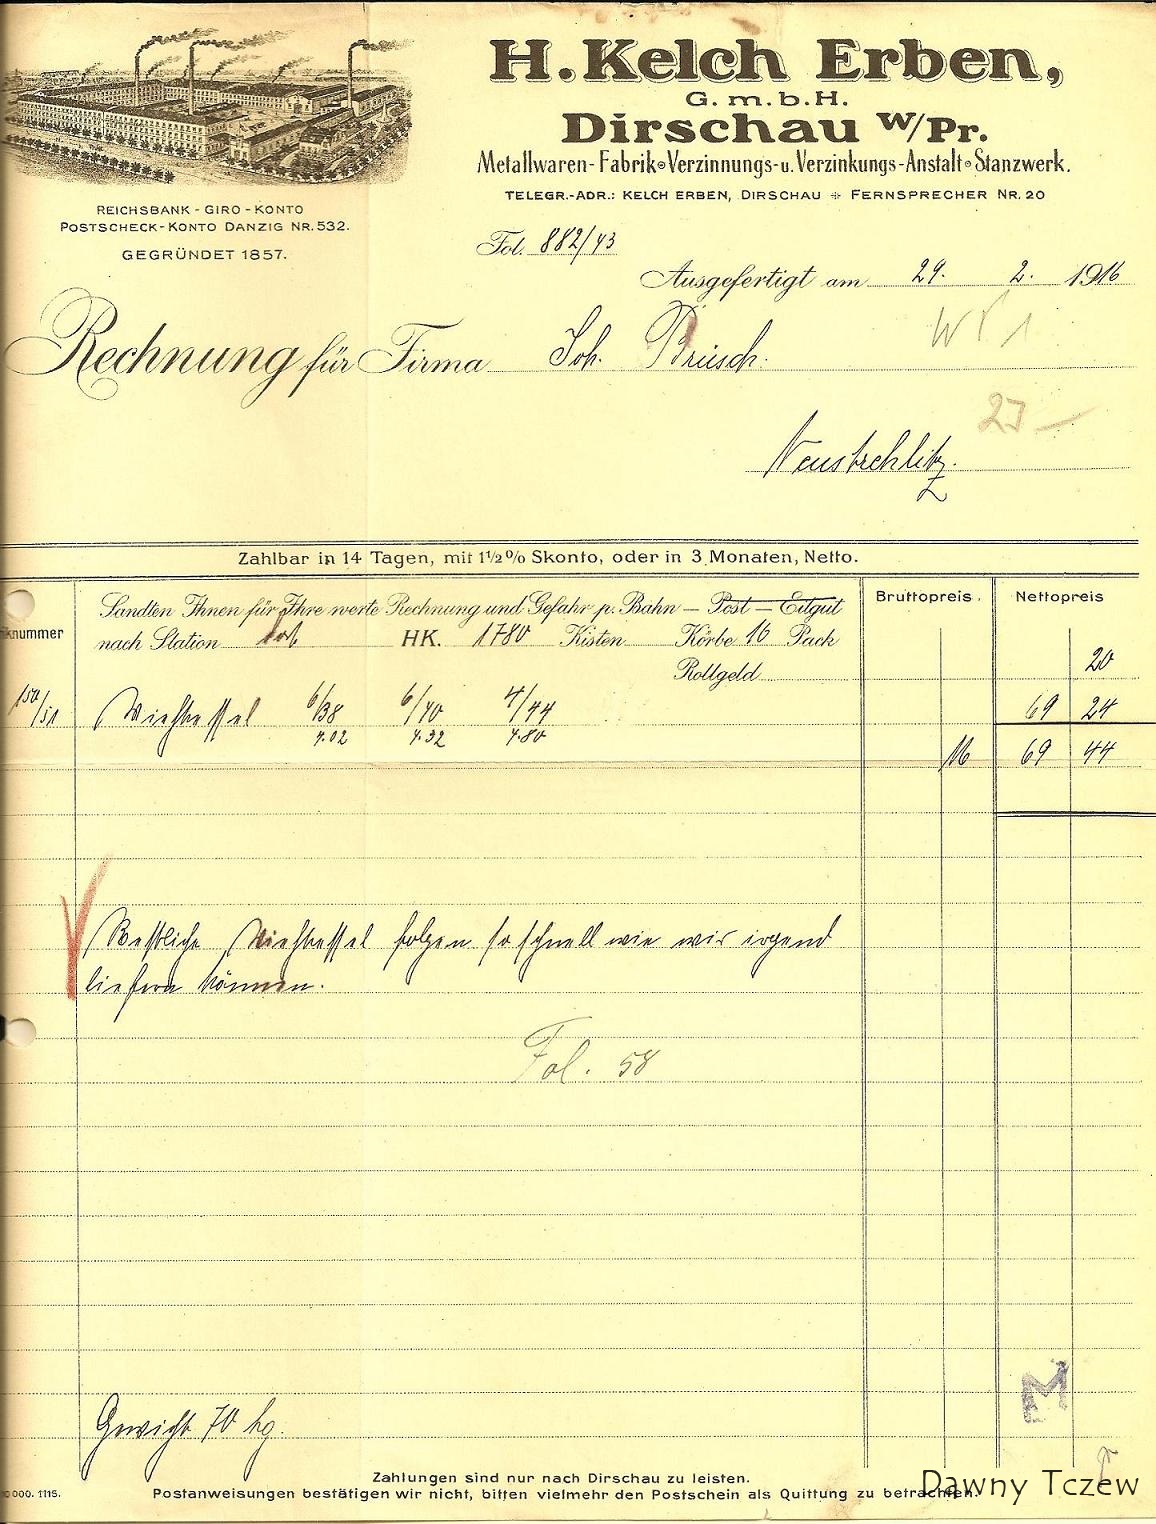 H. Kelch Erben,
G. m. b. H.
Dirschau W/Pr.
Metallwaren-Fabrik Verzinnungs- u. Verzinkungs-Anstalt Stanzwerk.
TELEGR.-ADR.: KELCH ERBEN, DIRSCHAU FERNSPRECHER NR. 20
REICHSBANK - GIRO - KONTO
POSTSCHECK-KONTO DANZIG NR. 532.
GEGRÜNDET 1857.
Fol. 882/43
Ausgefertigt am 29. 2. 1916
Rechnung für Firma Joh. Brüsch.
23 —
Neustrehlitz.
Zahlbar in 14 Tagen, mit 1½% Skonto, oder in 3 Monaten, Netto.
Sandten Ihnen für Ihre werte Rechnung und Gefahr p. Bahn — Post — Eilgut
Bruttopreis. Nettopreis
iknummer nach Station HK. 1780 Kisten Körbe 16 Pack
20
Rollgeld
150/51 Viehkessel 6/38 6/40 4/44 69 24
4.02 4.32 4.80
M 69 44
Restliche Viehkessel folgen so schnell wie wir irgend
liefern können.
Fol. 58
M
Gewicht 70 kg.
Zahlungen sind nur nach Dirschau zu leisten.
0 000. 1115. Postanweisungen bestätigen wir nicht, bitten vielmehr den Postschein als Quittung zu betrachten.
Dawny Tczew